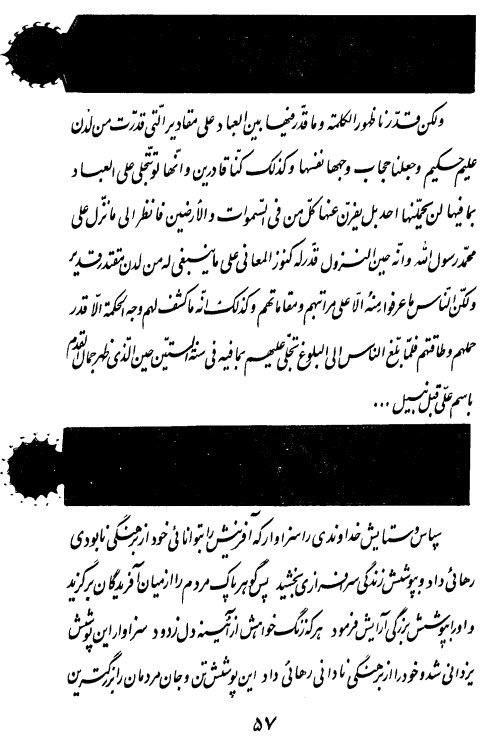 ولكن قدّرنا ظهور الكلمة و ما قدّر فيها بين العباد على مقادير الّتى قدّرت من لدن
عليم حكيم و جعلنا حجاب وجهها نفسها و كذلك كنّا قادرين و انّها لو تتجلّى على العباد
بما فيها لن يحملنّها احد بل يفرّن عنها كلّ من فى السّموات و الأرضين فانظر الى ما نزّل على
محمّد رسول الله و انّه حين النّزول قدّر له كنوز المعانى على ما ينبغى له من لدن مقتدر قدير
ولكن النّاس ما عرفوا منه الّا على مراتبهم و مقاماتهم و كذلك انّه ما كشف لهم وجه الحكمة الّا قدر
حملهم و طاقتهم فلمّا بلّغ الناس الى البلوغ تجلّى عليهم بما فيه فى سنة الستّين حين الّذى ظهر جمال القدم
باسم علىّ قبل نبيل ...
سپاس و ستايش خداوندى را سزاوار كه آفرينش را بتوانائى خود از برهنگى نابودى
رهائى داد و بپوشش زندگى سرافرازى بخشيد پس گوهر پاك مردم را از ميان آفريدگان برگزيد
و او را بپوشش بزرگى آرايش فرمود هر كه زنگ خواهش از آئينه دل زدود سزاوار اين پوشش
يزدانى شد و خود را از برهنگى نادانى رهائى داد اين پوشش تن و جان مردمان را بزرگترين
۵۷